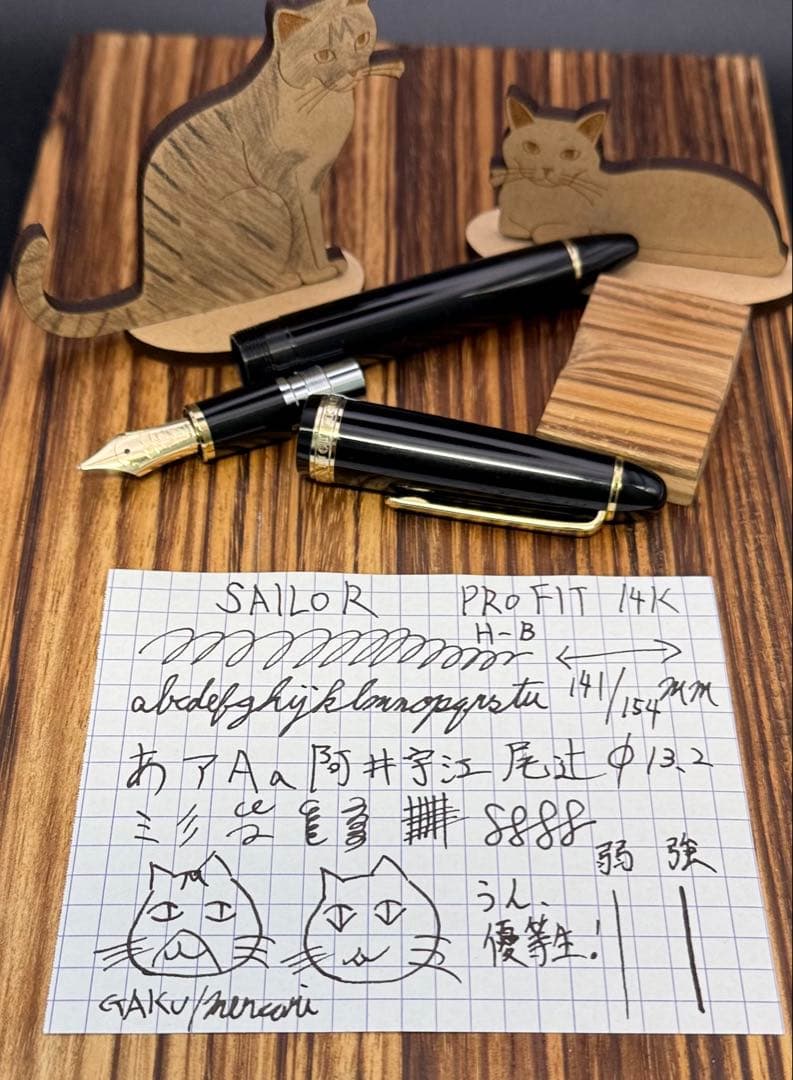 SAILOR PROFIT 14K
H-B
abcdefghijklmnopqrstu 141/154mm
あアAa阿井宇江尾辻 φ13.2
弱 強
うん、
優等生!
GAKU/mercari